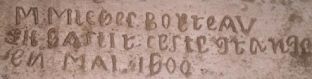 M. MICHEL BORTEAV
FIT BASTIR CESTE GRANGE
EN MAI 1600